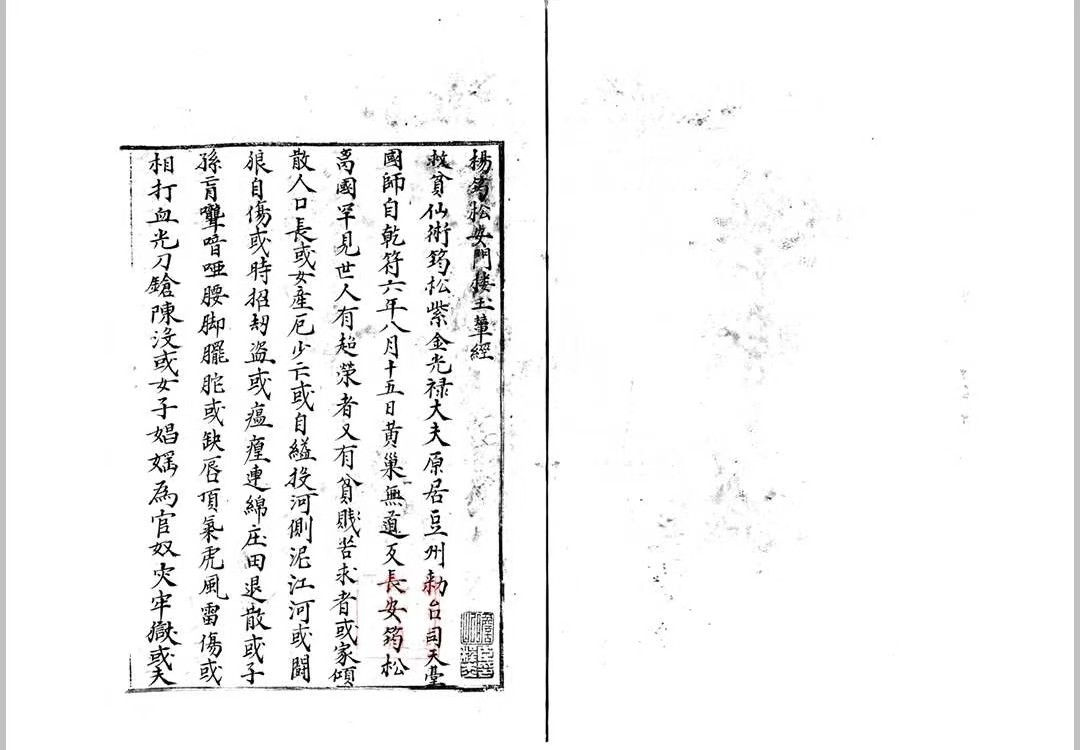 楊筠松安門楼玉輦經
救貧仙術筠松紫金光禄大夫原居豆州勑台司天臺
國師自乾符六年八月十五日黄巢無道反長安筠松
高國罕見世人有超荣者又有貧賤苦求者或家傾
散人口長或女産厄少亡或自縊投河側泥江河或鬪
狼自傷或時招刼盗或瘟瘟連綿庄田退散或子
孫盲聾喑啞腰脚躍跎或缺唇頂氣虎風雷傷或
相打血光刀鎗陳没或女子娼媱為官奴灾牢獄或夫